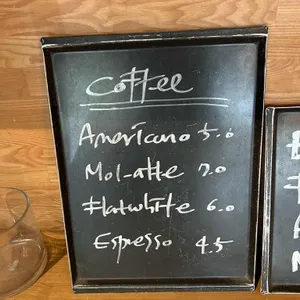 Coffee
Americano 5.0
Mol-atte 7.0
Flatwhite 6.0
Espresso 4.5